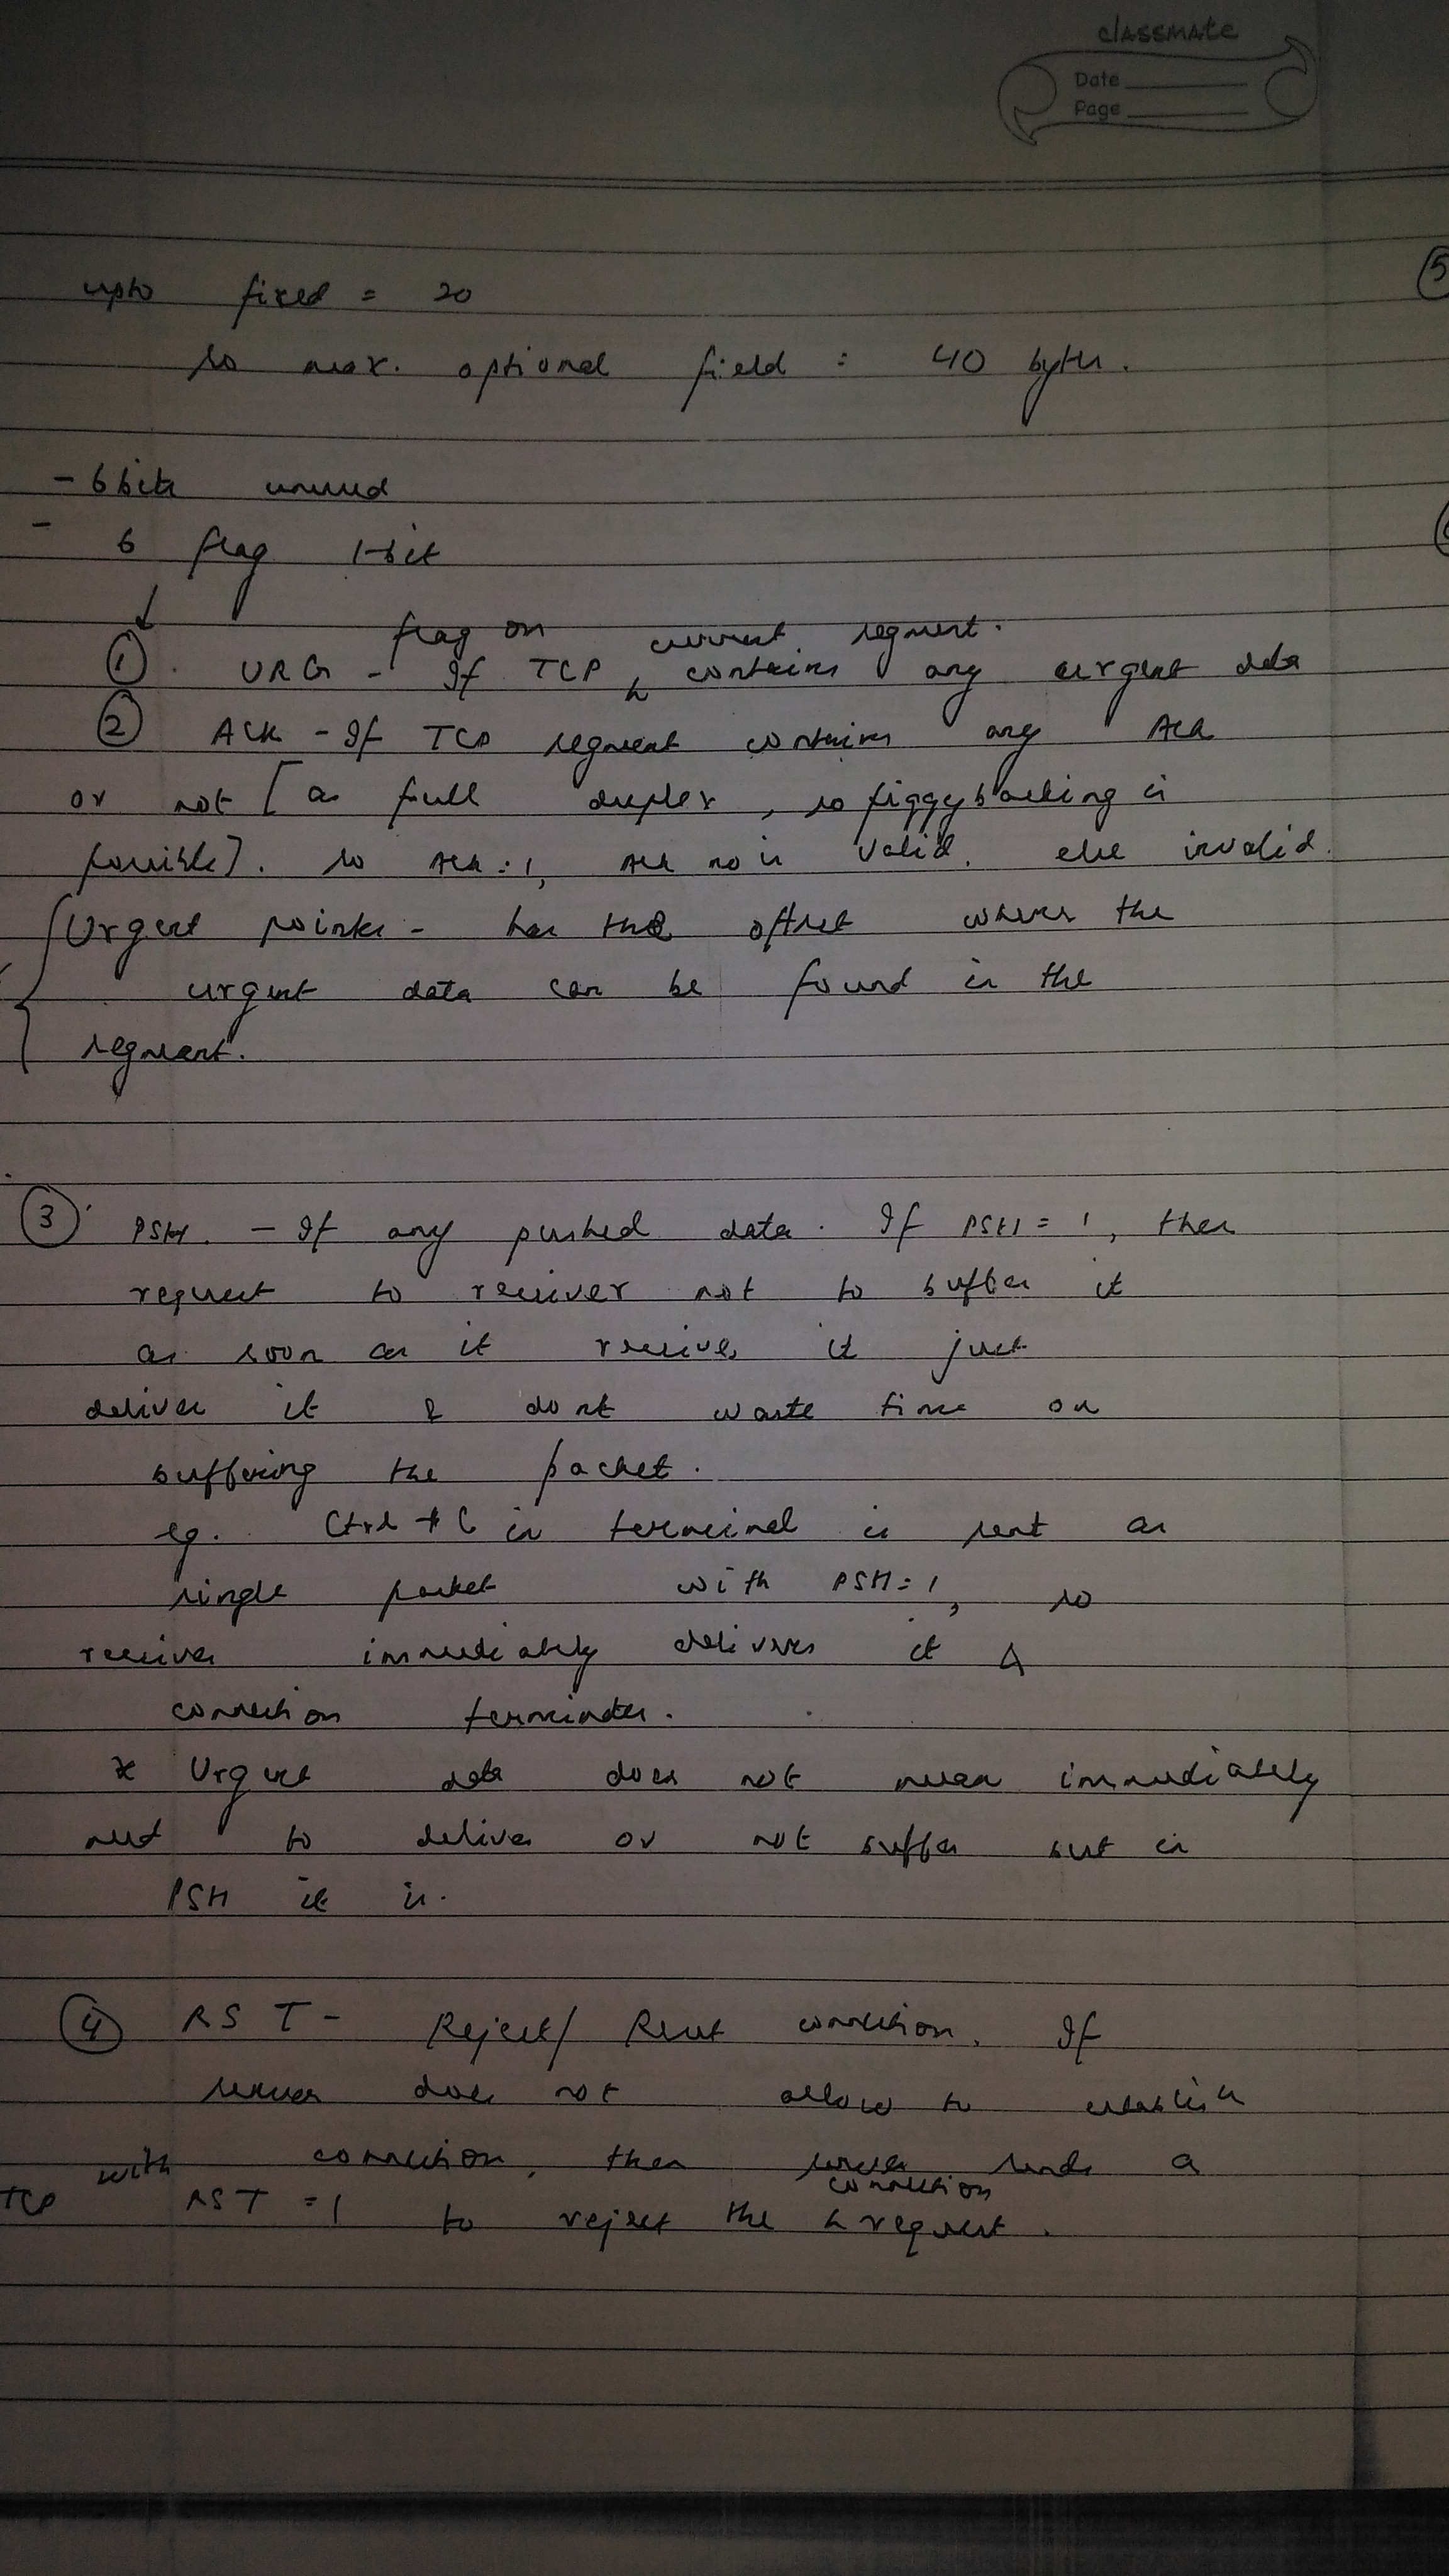 classmate
Date
Page
5
upto fixed = 20
so max. optional field = 40 bytes.
- 6 bits unused
- 6 flag 1-bit
flag on current segment.
1. URG - If TCP contains any urgent data
2 ACK - If TCP segment contains any Ack
or not [as full duplex, so piggybacking is
possible]. so Ack = 1, Ack no is valid. else invalid.
Urgent pointer - has the offset where the
urgent data can be found in the
segment.
3 PSH. - If any pushed data. If PSH = 1, then
request to receiver not to buffer it
as soon as it receives it just
deliver it & dont waste time on
buffering the packet.
eg. Ctrl + C in terminal is sent as
single packet with PSH = 1, so
receiver immediately delivers it &
connection terminates.
* Urgent data does not mean immediately
to deliver or not buffer but in
PSH it is.
4 RST - Reject/ Reset connection. If
server does not allow to establish
connection, then server sends a
TCP with RST = 1 to reject the connection request.